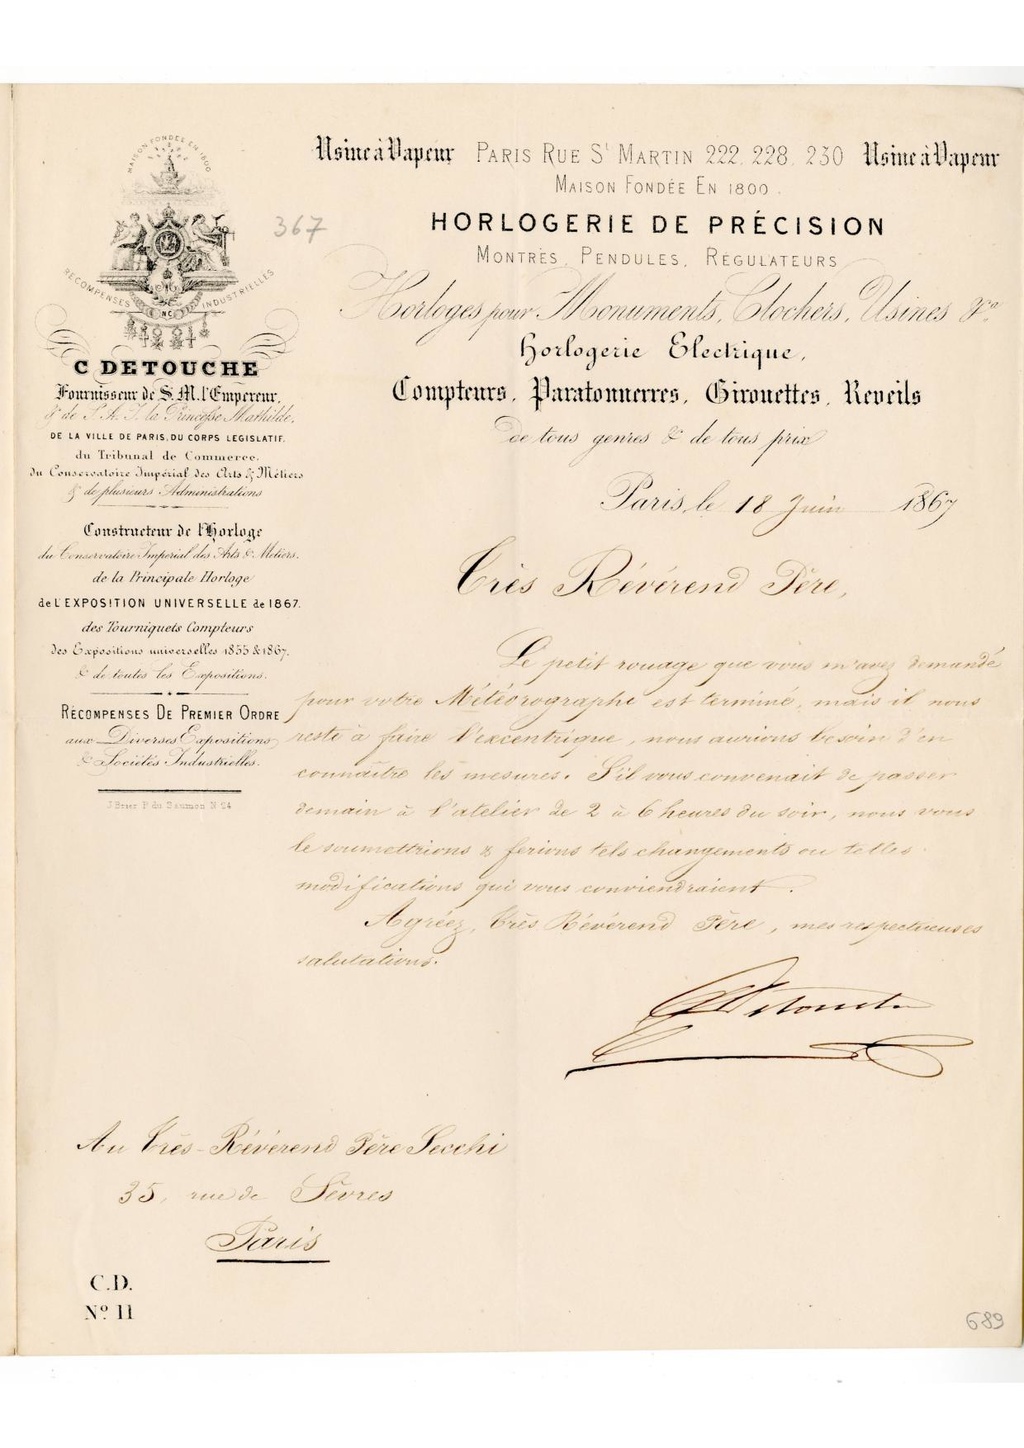 MAISON FONDÉE EN 1800
RÉCOMPENSES INDUSTRIELLES
C. DETOUCHE
Fournisseur de S. M. l'Empereur,
& de S. A. I. la Princesse Mathilde,
DE LA VILLE DE PARIS, DU CORPS LEGISLATIF.
du Tribunal de Commerce.
Du Conservatoire Impérial des Arts & Métiers
& de plusieurs Administrations
Constructeur de l'Horloge
du Conservatoire Imperial des Arts & Metiers.
de la Principale Horloge
de L'EXPOSITION UNIVERSELLE de 1867.
des Tourniquets Compteurs
des Expositions universelles 1855 & 1867.
& de toutes les Expositions.
RÉCOMPENSES DE PREMIER ORDRE
aux Diverses Expositions
& Sociétés Industrielles.
J. Brier P. du Saumon N 24
367
Usine à Vapeur PARIS RUE St MARTIN 222. 228. 230 Usine à Vapeur
MAISON FONDÉE EN 1800.
HORLOGERIE DE PRÉCISION
MONTRES, PENDULES, RÉGULATEURS
Horloges pour Monuments, Clochers, Usines &ca
Horlogerie Electrique,
Compteurs, Paratonnerres, Girouettes, Reveils
de tous genres & de tous prix
Paris, le 18 Juin 1867
Très Révérend Père,
Le petit rouage que vous m'avez demandé
pour votre Météorographe est terminé, mais il nous
reste à faire l'excentrique, nous aurions besoin d'en
connaître les mesures. S'il vous convenait de passer
demain à l'atelier de 2 à 6 heures du soir, nous vous
le soumettrions & ferions tels changements ou telles
modifications qui vous conviendraient.
Agréez, Très Révérend Père, mes respectueuses
salutations.
C Detouche
Au Très-Révérend Père Secchi
35, rue de Sèvres
Paris
C.D.
No 11
689